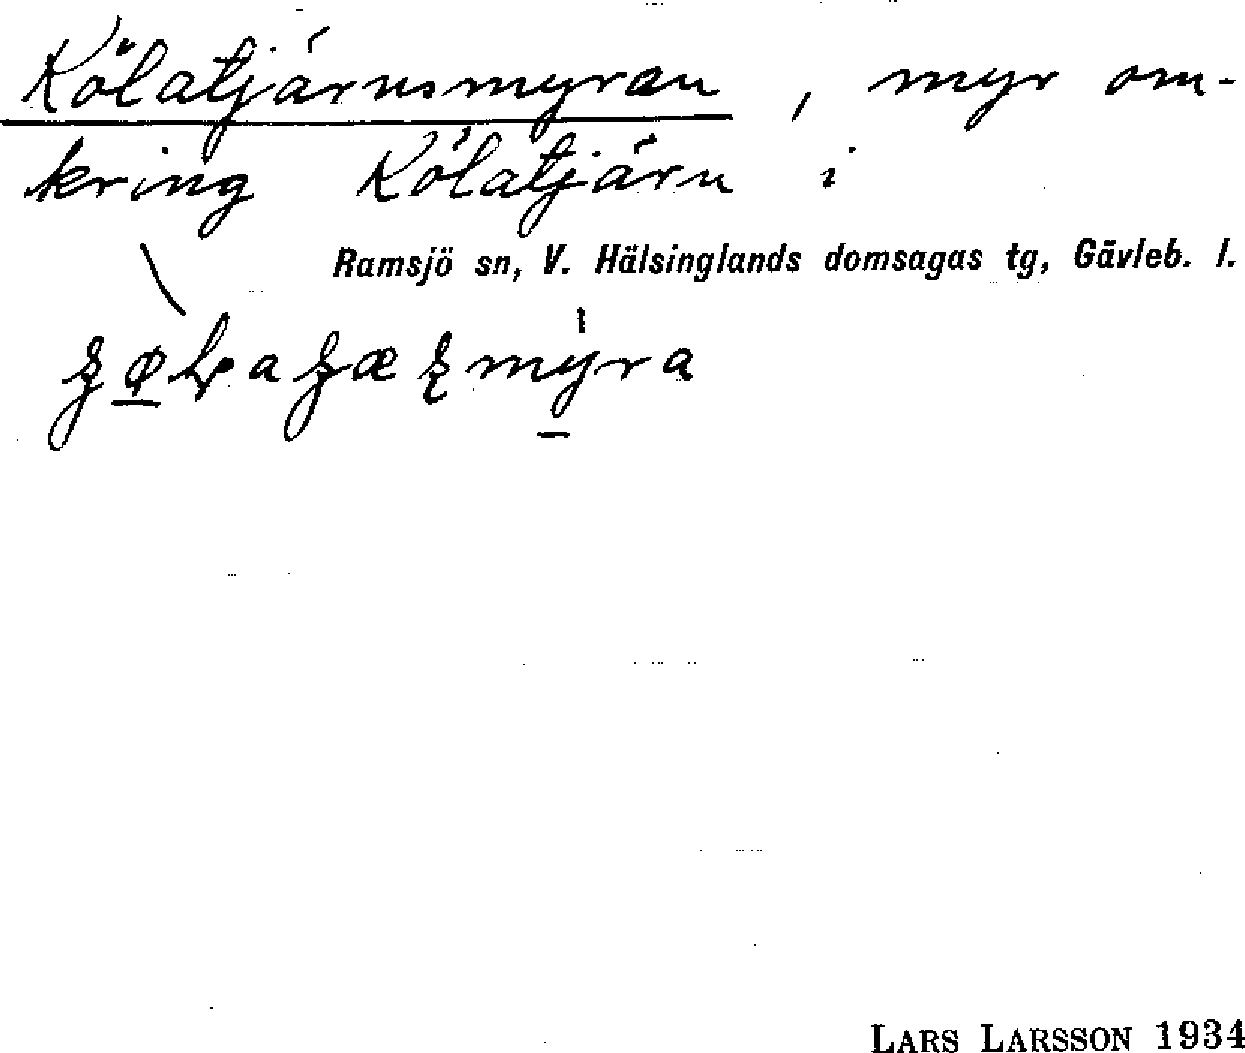 Kölatjärnsmyran, myr om-
kring Kölatjärn i
Ramsjö sn, V. Hälsinglands domsagas tg, Gävleb. l.
LARS LARSSON 1934